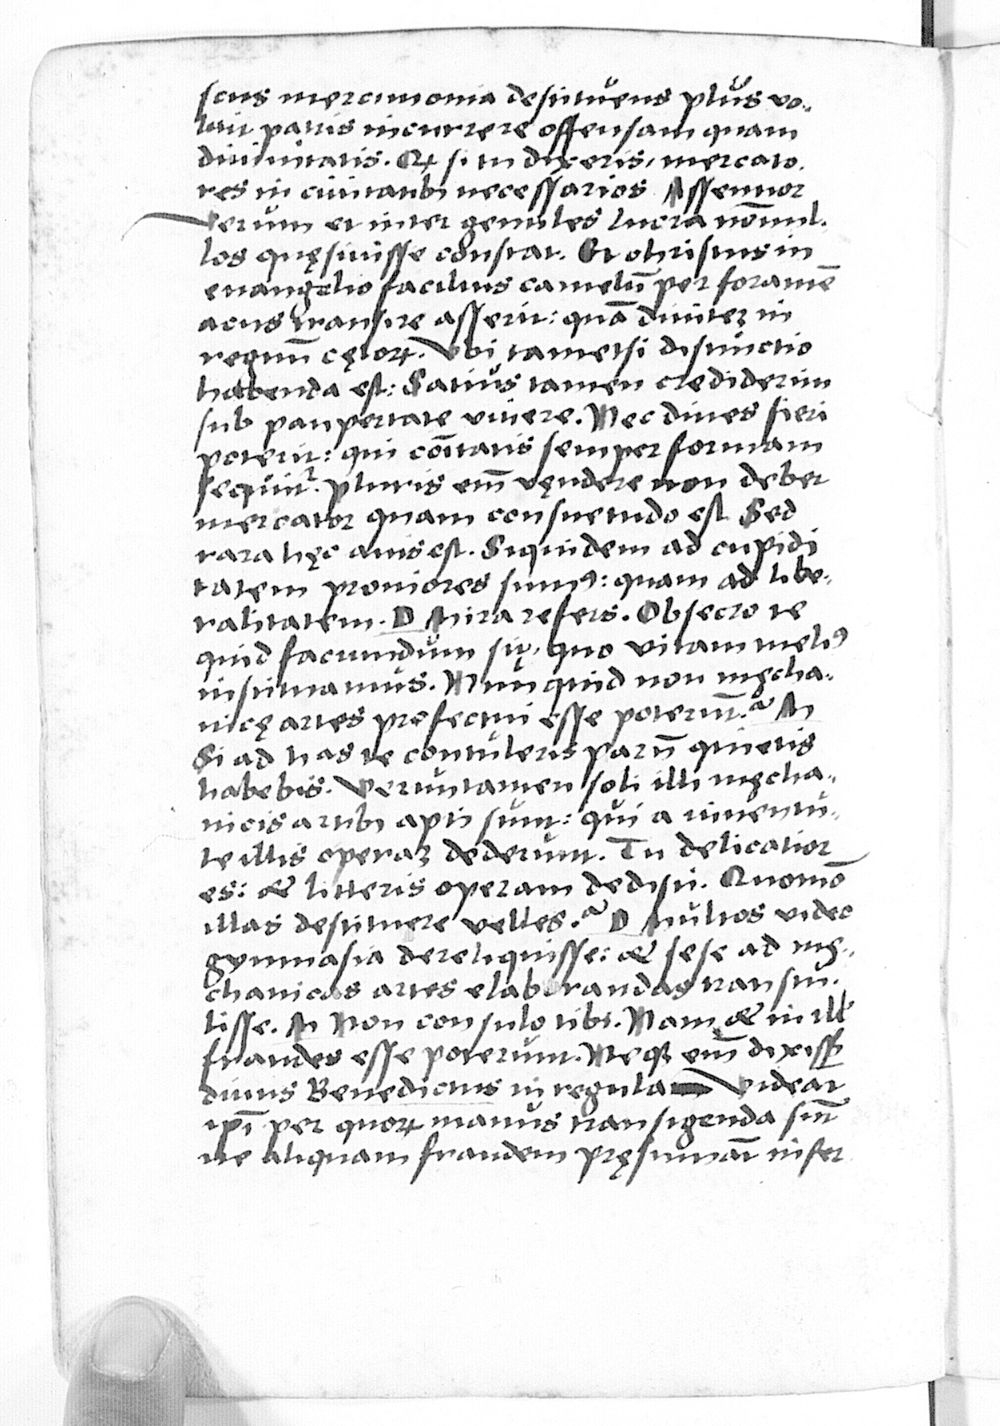 scus mercimonia destituens plus vo-
luit patris incurrere offensam quam
diuinitatis. Qꝛ si tu dixeris, mercato-
res in ciuitatibꝫ necessarios Assentior
Verum et inter gentiles lucra nōnul-
los quęsiuisse constat. Et christus in
euangelio facilius camelū per foramē
acus transire asserit: quā diuitez in
regnū cęloꝝ. Vbi tametsi distinctio
habenda est: Satius tamen crediderim
sub paupertate viuere. Nec diues fieri
poterit: qui cōitatis semper formam
sequit᷑. Pluris em̄ vęndere non debet
mercator quam consuetudo est Sed
rara hęc auis est. Siquidem ad cupidi
tatem proniores sumꝰ: quam ad libe-
ralitatem. D Mira refers. Obsecro te
quid faciundum sit, quo vitam meliꝰ
instituamus. Nunquid non męcha-
nicę artes profectui esse poterūt? M
Si ad has te contuleris parū quietis
habebis. Veruntamen soli illi męcha-
nicis artibꝫ apti sunt: qui a iuuentu-
te illis operaꝫ dederunt. Tu delicatior
es: & litteris operam dedisti. Quomō
illas destituere velles? D Multos video
gymnasia dereliquisse: & sese ad mę-
chanicas artes elaborandas transtu-
lisse. M Non consulo tibi. Nam & in ill̄
fraudes esse poterunt. Neqꝫ em̄ dixiss&
diuus Benedictus in regula Videat
ip̄i per quoꝝ manus transigenda sūt
ne aliquam fraudem pręsumāt infer